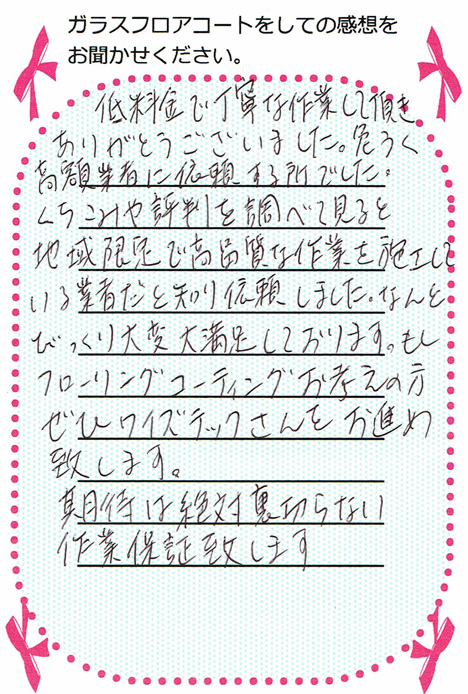 ガラスフロアコートをしての感想を
お聞かせください。
低料金で丁寧な作業して頂き
ありがとうございました。危うく
高額業者に依頼する所でした。
くちこみや評判を調べて見ると
地域限定で高品質な作業を施工して
いる業者だと知り依頼しました。なんと
びっくり大変大満足しております。もし
フローリングコーティングお考えの方
ぜひワイズテックさんをお進め
致します。
期待は絶対裏切らない
作業保証致します